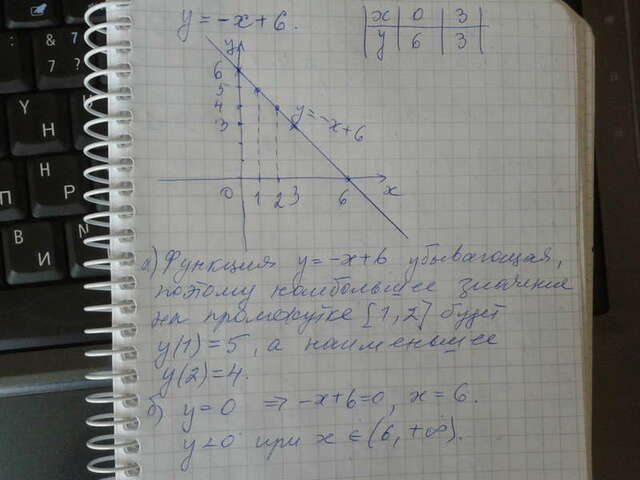 y = -x + 6.
x 0 3
y 6 3
y
6
5
4
3
y = -x + 6
0 1 2 3 6 x
а) Функция y = -x + 6 убывающая,
поэтому наибольшее значение
на промежутке [1, 2] будет
y(1) = 5, а наименьшее
y(2) = 4.
б) y = 0 => -x + 6 = 0, x = 6.
y < 0 при x ∈ (6, +∞).
&
7
?
7
Y
Н
H
Р
П
В
И
N